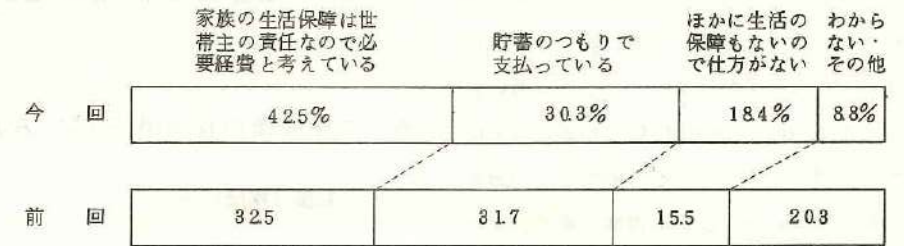 家族の生活保障は世
帯主の責任なので必
要経費と考えている
貯蓄のつもりで
支払っている
ほかに生活の
保障もないの
で仕方がない
わから
ない・
その他
今 回
42.5%
30.3%
18.4%
8.8%
前 回
32.5
31.7
15.5
20.3